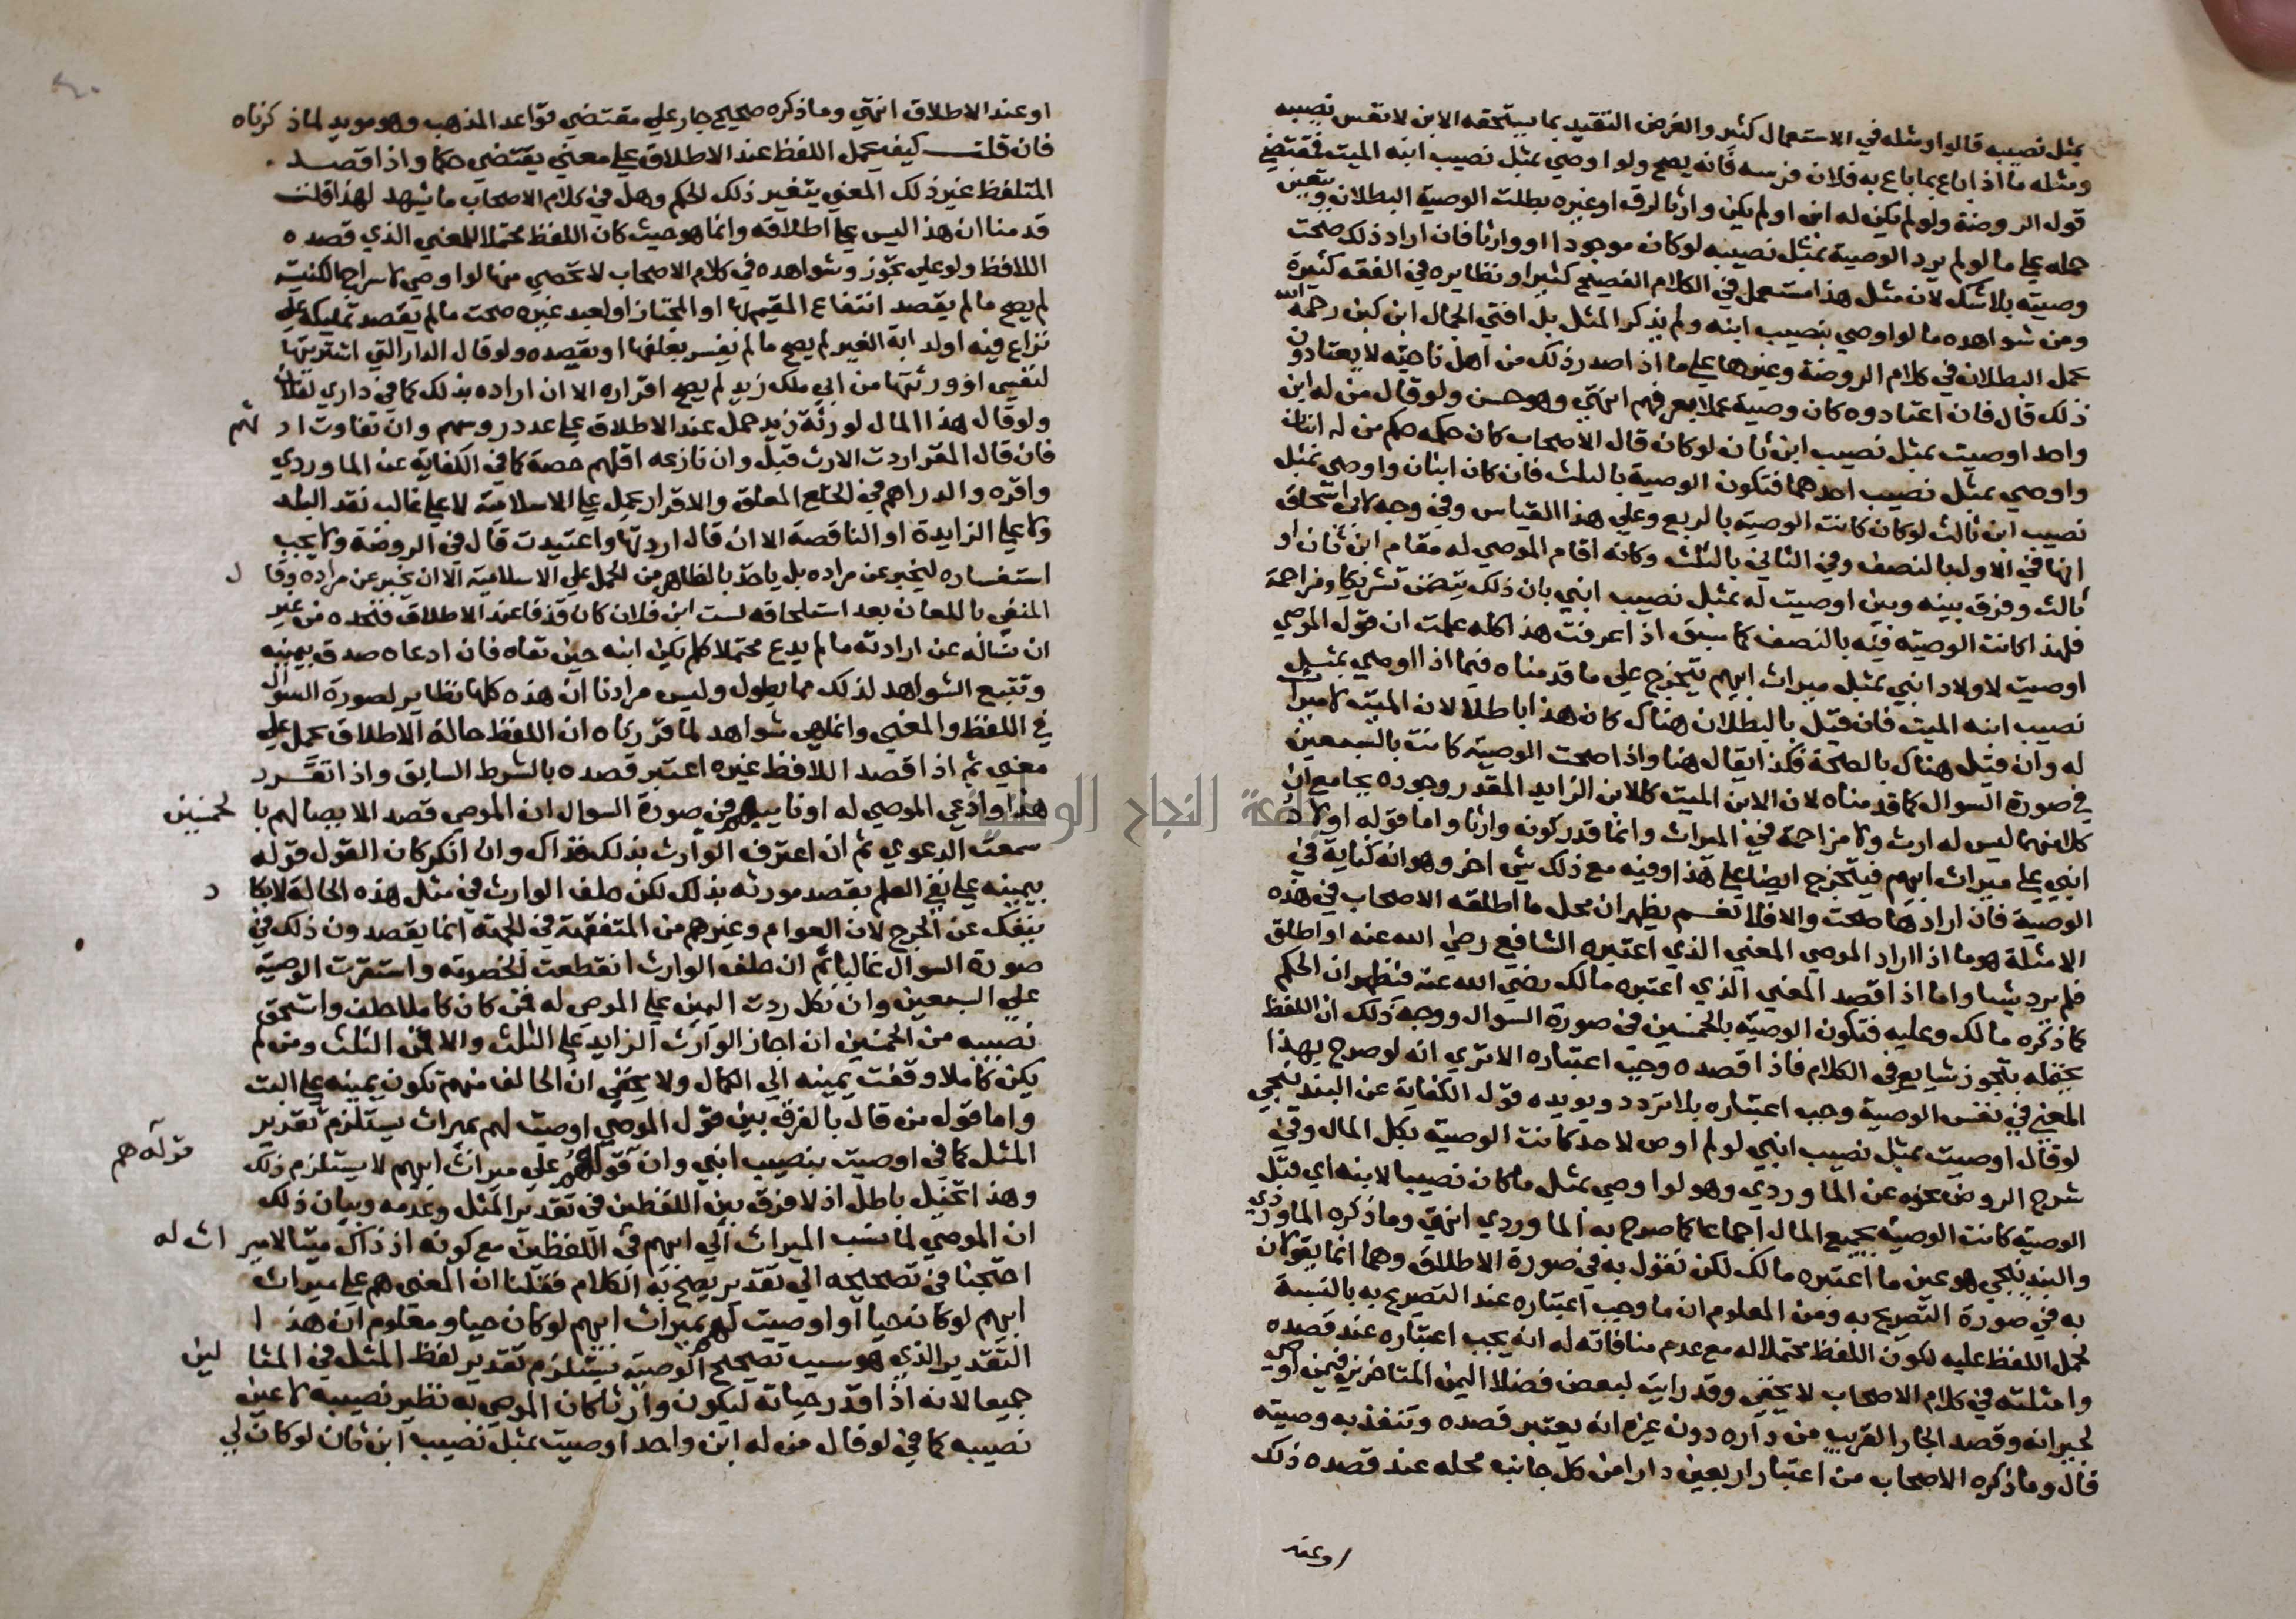 بمثل نصيبه قالوا ومثله في الاستعمال كثير والغرض التقييد بما يستحقه الابن لا نفس نصيبه
ومثله ما اذا باع بما باع به فلان فرسه فانه يصح ولو اوصي بمثل نصيب ابنه الميت فمقتضي
قول الروضة ولو لم يكن له ابن او لم يكن وارثا لرق او غيره بطلت الوصية البطلان ويتعين
حمله علي ما لو لم يرد الوصية بمثل نصيبه لو كان موجودا او وارثا فان اراد ذلك صحت
وصيته بلا شك لان مثل هذا مستعمل في الكلام الفصيح كثيرا ونظايره في الفقه كثيرة
ومن شواهده ما لو اوصي بنصيب ابنه ولم يذكر المثل بل افتي الجمال ابن كبن رحمه الله
بحمل البطلان في كلام الروضة وغيرها علي ما اذا صدر ذلك من اهل ناحية لا يعتادون
ذلك قال فان اعتادوه كان وصية عملا بعرفهم انتهي وهو حسن ولو قال من له ابن
واحد اوصيت بمثل نصيب ابن ثان لو كان قال الاصحاب كان حكمه حكم من له ابنان
واوصي بمثل نصيب احدهما فتكون الوصية بالثلث فان كان ابنان واوصي بمثل
نصيب ابن ثالث لو كان كانت الوصية بالربع وعلي هذا القياس وفي وجه لابي اسحاق
انها في الاولي بالنصف وفي الثاني بالثلث وكانه اقام الموصي له مقام ابن ثان او
ثالث وفرق بينه وبين اوصيت له بمثل نصيب ابني بان ذلك يتضمن تشريكا ومزاحمة
فلهذا كانت الوصية فيه بالنصف كما سبق اذا عرفت هذا كله علمت ان قول الموصي
اوصيت لاولاد ابني بمثل ميراث ابيهم يتخرج علي ما قدمناه فيما اذا اوصي بمثل
نصيب ابنه الميت فان قيل بالبطلان هناك كان هذا باطلا لان الميت لا ميراث
له وان قيل هناك بالصحة فكذا يقال هنا واذا صحت الوصية كانت بالسبعين
في صورة السوال كما قدمناه لان الابن الميت كالابن الزايد المقدر وجوده بجامع ان
كلا منهما ليس له ارث ولا مزاحمة في الميراث وانما قدر كونه وارثا واما قوله اولاد
ابني علي ميراث ابيهم فيتخرج ايضا علي هذا وفيه مع ذلك شي اخر وهو انه كناية في
الوصية فان ارادها صحت والا فلا نعم يظهر ان محل ما اطلقه الاصحاب في هذه
الامثلة هو ما اذا اراد الموصي المعني الذي اعتبره الشافعي رضي الله عنه او اطلق
فلم يرد شيا واما اذا قصد المعني الذي اعتبره مالك رضي الله عنه فيظهر ان الحكم
كما ذكره مالك وعليه فتكون الوصية بالخمسين في صورة السوال ووجه ذلك ان اللفظ
يحتمله بتجوز شايع في الكلام فاذا قصده وجب اعتباره الا تري انه لو صرح بهذا
المعني في نفس الوصية وجب اعتباره بلا تردد ويويده قول الكفاية عن البندنيجي
لو قال اوصيت بمثل نصيب ابني لو لم اوص لاحد كانت الوصية بكل المال وفي
شرح الروض نحوه عن الماوردي وهو لو اوصي بمثل ما كان نصيبا لابنه اي قبل
الوصية كانت الوصية بجميع المال اجماعا كما صرح به الماوردي انتهي وما ذكره الماوردي
والبندنيجي هو عين ما اعتبره مالك لكن نقول به في صورة الاطلاق وهما انما يقولان
به في صورة التصريح به ومن المعلوم ان ما وجب اعتباره عند التصريح به بالنسبة
لحمل اللفظ عليه لكون اللفظ محتملا له مع عدم منافاته له انه يجب اعتباره عند قصده
وامثلته في كلام الاصحاب لا تخفي وقد رايت لبعض فضلا اليمن المتاخرين فيمن اوصي
لجيرانه وقصد الجار القريب من داره دون غيره انه يعتبر قصده وتنفذ به وصيته
قال وما ذكره الاصحاب من اعتبار اربعين دارا من كل جانب محله عند قصده ذلك
او عند
او عند الاطلاق انتهي وما ذكره صحيح جار علي مقتضي قواعد المذهب وهو مويد لما ذكرناه
فان قلت كيف يحمل اللفظ عند الاطلاق علي معني يقتضي حكما واذا قصد
المتلفظ غير ذلك المعني يتغير ذلك الحكم وهل في كلام الاصحاب ما يشهد لهذا قلت
قدمنا ان هذا ليس علي اطلاقه وانما هو حيث كان اللفظ محتملا للمعني الذي قصده
اللافظ ولو علي تجوز وشواهده في كلام الاصحاب لا تحصي منها لو اوصي لاسراج الكنيسة
لم يصح ما لم يقصد انتفاع المقيم بها او المجتاز او لعبد غيره صحت ما لم يقصد تمليكه علي
نزاع فيه او لدابة الغير لم يصح ما لم يفسر بعلفها او بقصده ولو قال الدار التي اشتريتها
لنفسي او ورثتها من ابي ملك زيد لم يصح اقراره الا ان اراده بذلك كما في داري لفلان
ولو قال هذا المال لورثة زيد حمل عند الاطلاق علي عدد روسهم وان تفاوت ارثهم
فان قال المقر اردت الارث قبل وان نازعه اقلهم حصة كما في الكفاية عن الماوردي
واقره والدراهم في الخلع المعلق والاقرار يحمل علي الاسلامية لا علي غالب نقد البلد
ولا علي الزايدة او الناقصة الا ان قال اردتها واعتيدت قال في الروضة ولا يجب
استفساره ليخبر عن مراده بل ياخذ بالظاهر من الحمل علي الاسلامية الا ان يخبر عن مراده وقال
المنفي باللعان بعد استلحاقه لست ابن فلان كان قذفا عند الاطلاق فنحده من غير
ان نساله عن ارادته ما لم يدع محتملا كلم يكن ابنه حين نفاه فان ادعاه صدق بيمينه
وتتبع الشواهد لذلك مما يطول وليس مرادنا ان هذه كلها نظاير لصورة السوال
في اللفظ والمعني وانما هي شواهد لما قررناه ان اللفظ حالة الاطلاق يحمل علي
معني ثم اذا قصد اللافظ غيره اعتبر قصده بالشرط السابق واذا تقرر
هذا وادعي الموصي له او نايبهم في صورة السوال ان الموصي قصد الايصا لهم بالخمسين
سمعت الدعوي ثم ان اعترف الوارث بذلك فذاك وان انكر كان القول قوله
بيمينه علي نفي العلم بقصد مورثه بذلك لكن حلف الوارث في مثل هذه الحالة لا يكاد
ينفك عن الحرج لان العوام وغيرهم من المتفقهة في الجهة انما يقصدون ذلك في
صورة السوال غالبا ثم ان حلف الوارث انقطعت الخصومة واستقرت الوصية
علي السبعين وان نكل ردت اليمين علي الموصي له فمن كان كاملا حلف واستحق
نصيبه من الخمسين ان اجاز الوارث الزايد علي الثلث والا فمن الثلث ومن لم
يكن كاملا وقفت يمينه الي الكمال ولا يخفي ان الحالف منهم تكون يمينه علي البت
واما قول من قال بالفرق بين قول الموصي اوصيت لهم بميراث يستلزم تقدير
المثل كما في اوصيت بنصيب ابني وان قوله هم علي ميراث ابيهم لا يستلزم ذلك
قوله هم
وهذا تخيل باطل اذ لا فرق بين اللفظين في تقدير المثل وعدمه وبيان ذلك
ان الموصي لما نسب الميراث الي ابيهم في اللفظين مع كونه اذ ذاك ميتا لا ميراث له
احتجنا في تصحيحه الي تقدير يصح به الكلام فقلنا ان المعني هم علي ميراث
ابيهم لو كان حيا او اوصيت لهم بميراث ابيهم لو كان حيا ومعلوم ان هذا
التقدير الذي هو سبب تصحيح الوصية يستلزم تقدير لفظ المثل في المثالين
جميعا لانه اذا قدر حياته ليكون وارثا كان الموصي به نظير نصيبه لا عين
نصيبه كما في لو قال من له ابن واحد اوصيت بمثل نصيب ابن ثان لو كان لي